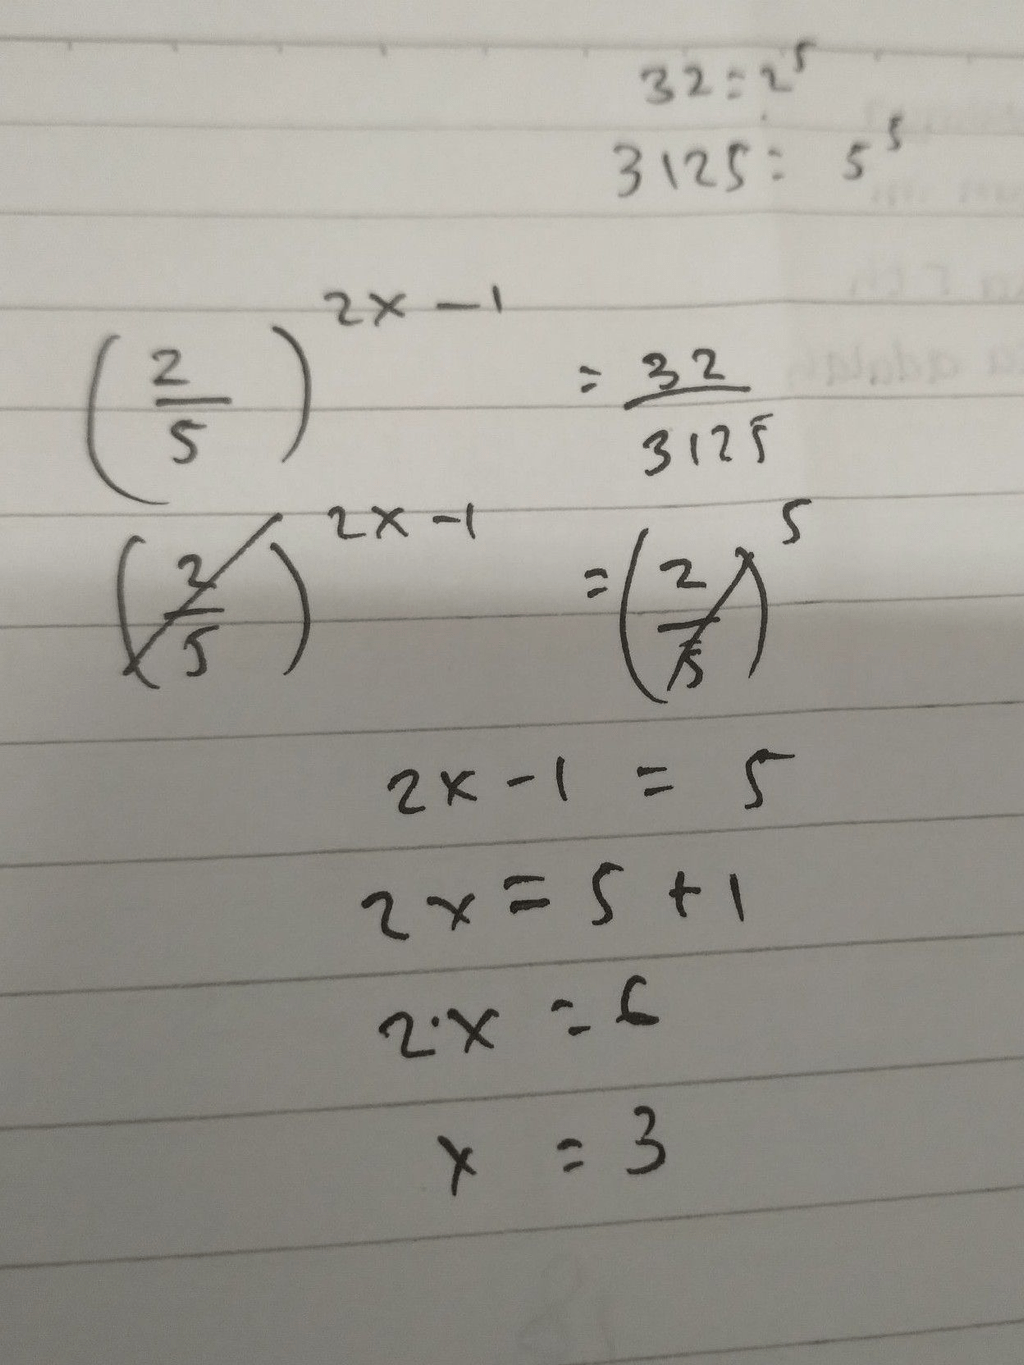 32 = 2⁵
3125 = 5⁵
(2/5)^(2x - 1) = 32/3125
(2/5)^(2x - 1) = (2/5)^5
2x - 1 = 5
2x = 5 + 1
2·x = 6
x = 3